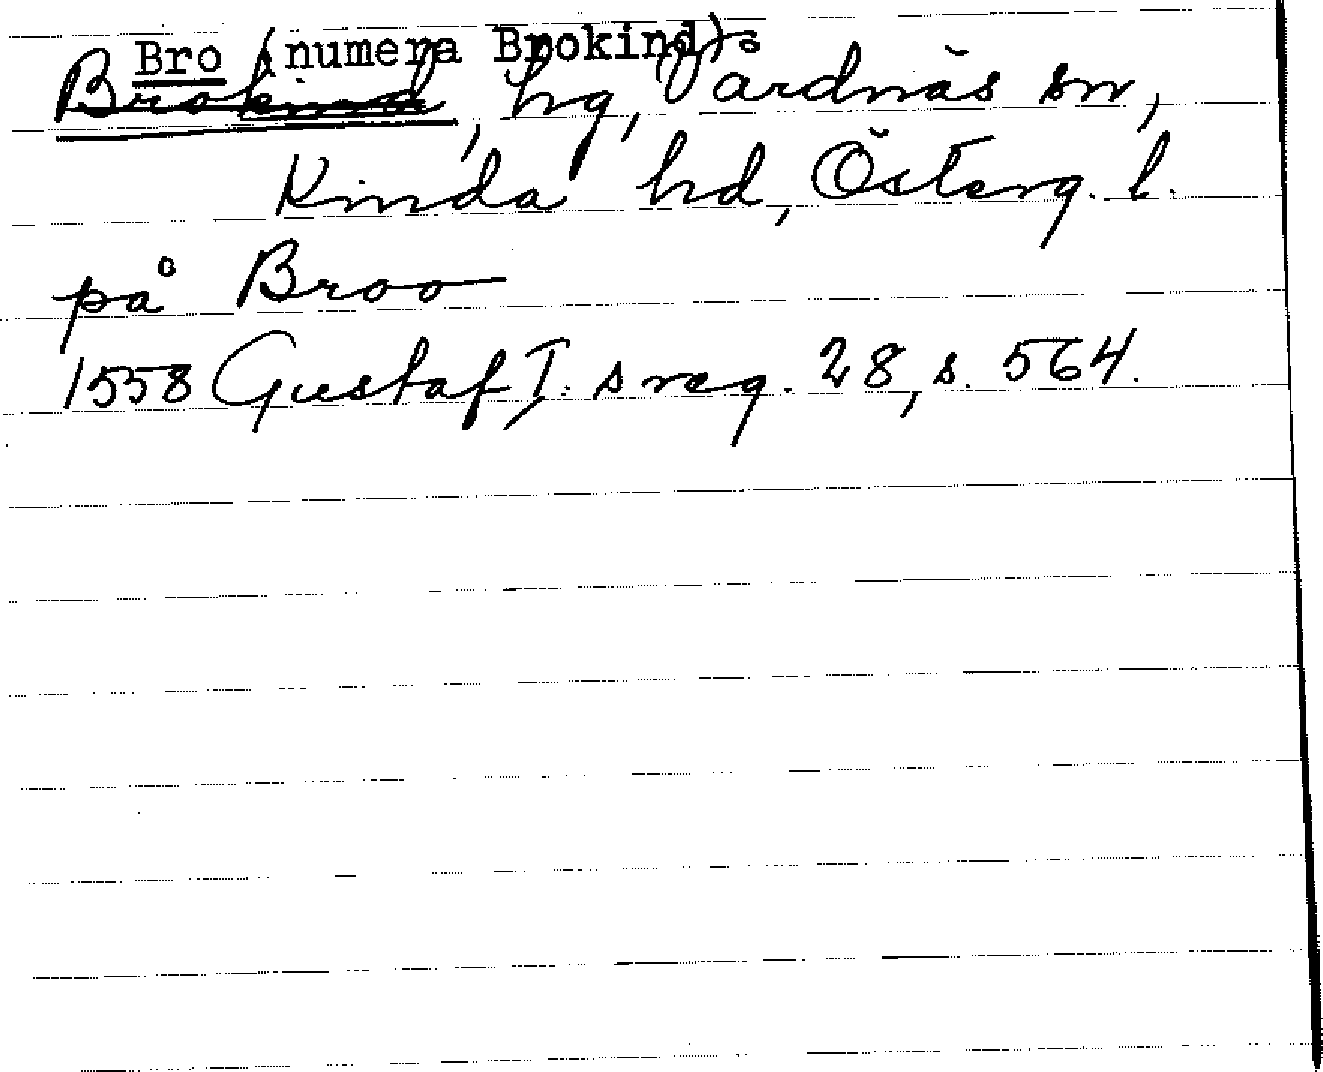 Bro (numera Brokind)
Brokind, hg, Vårdnäs sn,
Kinda hd, Österg. l.
på Broo
1558 Gustaf I:s reg. 28, s. 564.